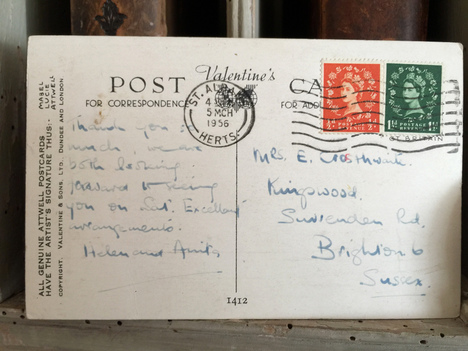 POST Valentine's CARD
FOR CORRESPONDENCE
FOR ADD
ST. AL
4
5 MCH
1956
HERTS
½D ½D
POSTAGE
REVENUE
1½D 1½D
POSTAGE
REVENUE
BRITAIN
MABEL
LUCIE
ATTWELL
ALL GENUINE ATTWELL POSTCARDS
HAVE THE ARTIST'S SIGNATURE THUS:-
COPYRIGHT. VALENTINE & SONS, LTD., DUNDEE AND LONDON
Thank you so
much we are
both looking
forward to seeing
you on Sat. Excellent
arrangements.
Helen and Anita
Mrs. E. Crosthwaite
Kingswood
Surrenden Rd.
Brighton 6
Sussex.
1412